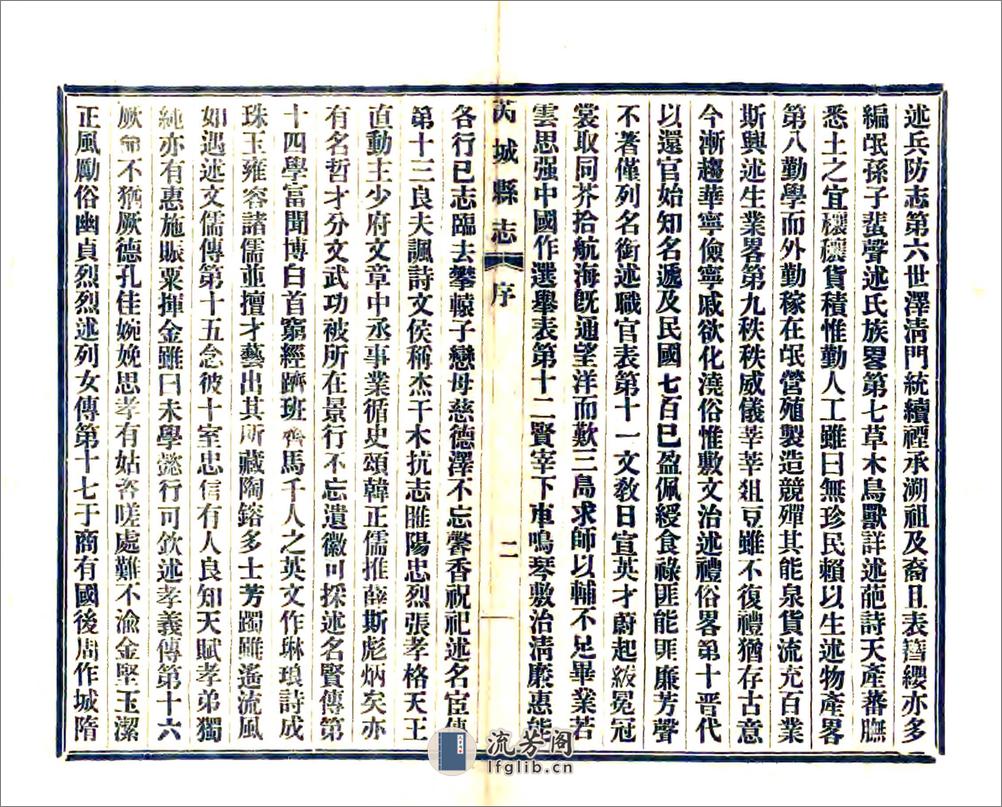 述兵防志第六世澤淸門統續禋承溯祖及裔且表簪纓亦多
編氓孫子蜚聲述氏族畧第七草木鳥獸詳述葩詩天產蕃膴
悉土之宜穰穰貨積惟勤人工雖曰無珍民賴以生述物產畧
第八勤學而外勤稼在氓營殖製造競殫其能泉貨流充百業
斯興述生業畧第九秩秩威儀莘莘俎豆雖不復禮猶存古意
今漸趨華寧儉寧戚欲化澆俗惟敷文治述禮俗畧第十晋代
以還官始知名遞及民國七百已盈佩綬食祿匪能匪廉芳聲
不著僅列名銜述職官表第十一文敎日宣英才蔚起紱冕冠
裳取同芥拾航海旣通望洋而歎三島求師以輔不足畢業若
雲思强中國作選舉表第十二賢宰下車鳴琴敷治淸廉惠能
芮城縣志 序 二
各行已志臨去攀轅子戀母慈德澤不忘馨香祝祀述名宦傳
第十三良夫諷詩文侯稱杰干木抗志睢陽忠烈張孝格天王
直動主少府文章中丞事業循史頌韓正儒推薛斯彪炳矣亦
有名哲才分文武功被所在景行不忘遺徽可採述名賢傳第
十四學富聞博白首窮經躋班齊馬千人之英文作琳琅詩成
珠玉雍容諸儒並擅才藝出其所藏陶鎔多士芳躅雖遙流風
如遇述文儒傳第十五念彼十室忠信有人良知天賦孝弟獨
純亦有惠施賑粟揮金雖曰未學懿行可欽述孝義傳第十六
厥命不猶厥德孔佳婉娩思孝有姑咨嗟處難不渝金堅玉潔
正風勵俗幽貞烈烈述列女傳第十七于商有國後周作城隋
流芳阁
lfglib.cn